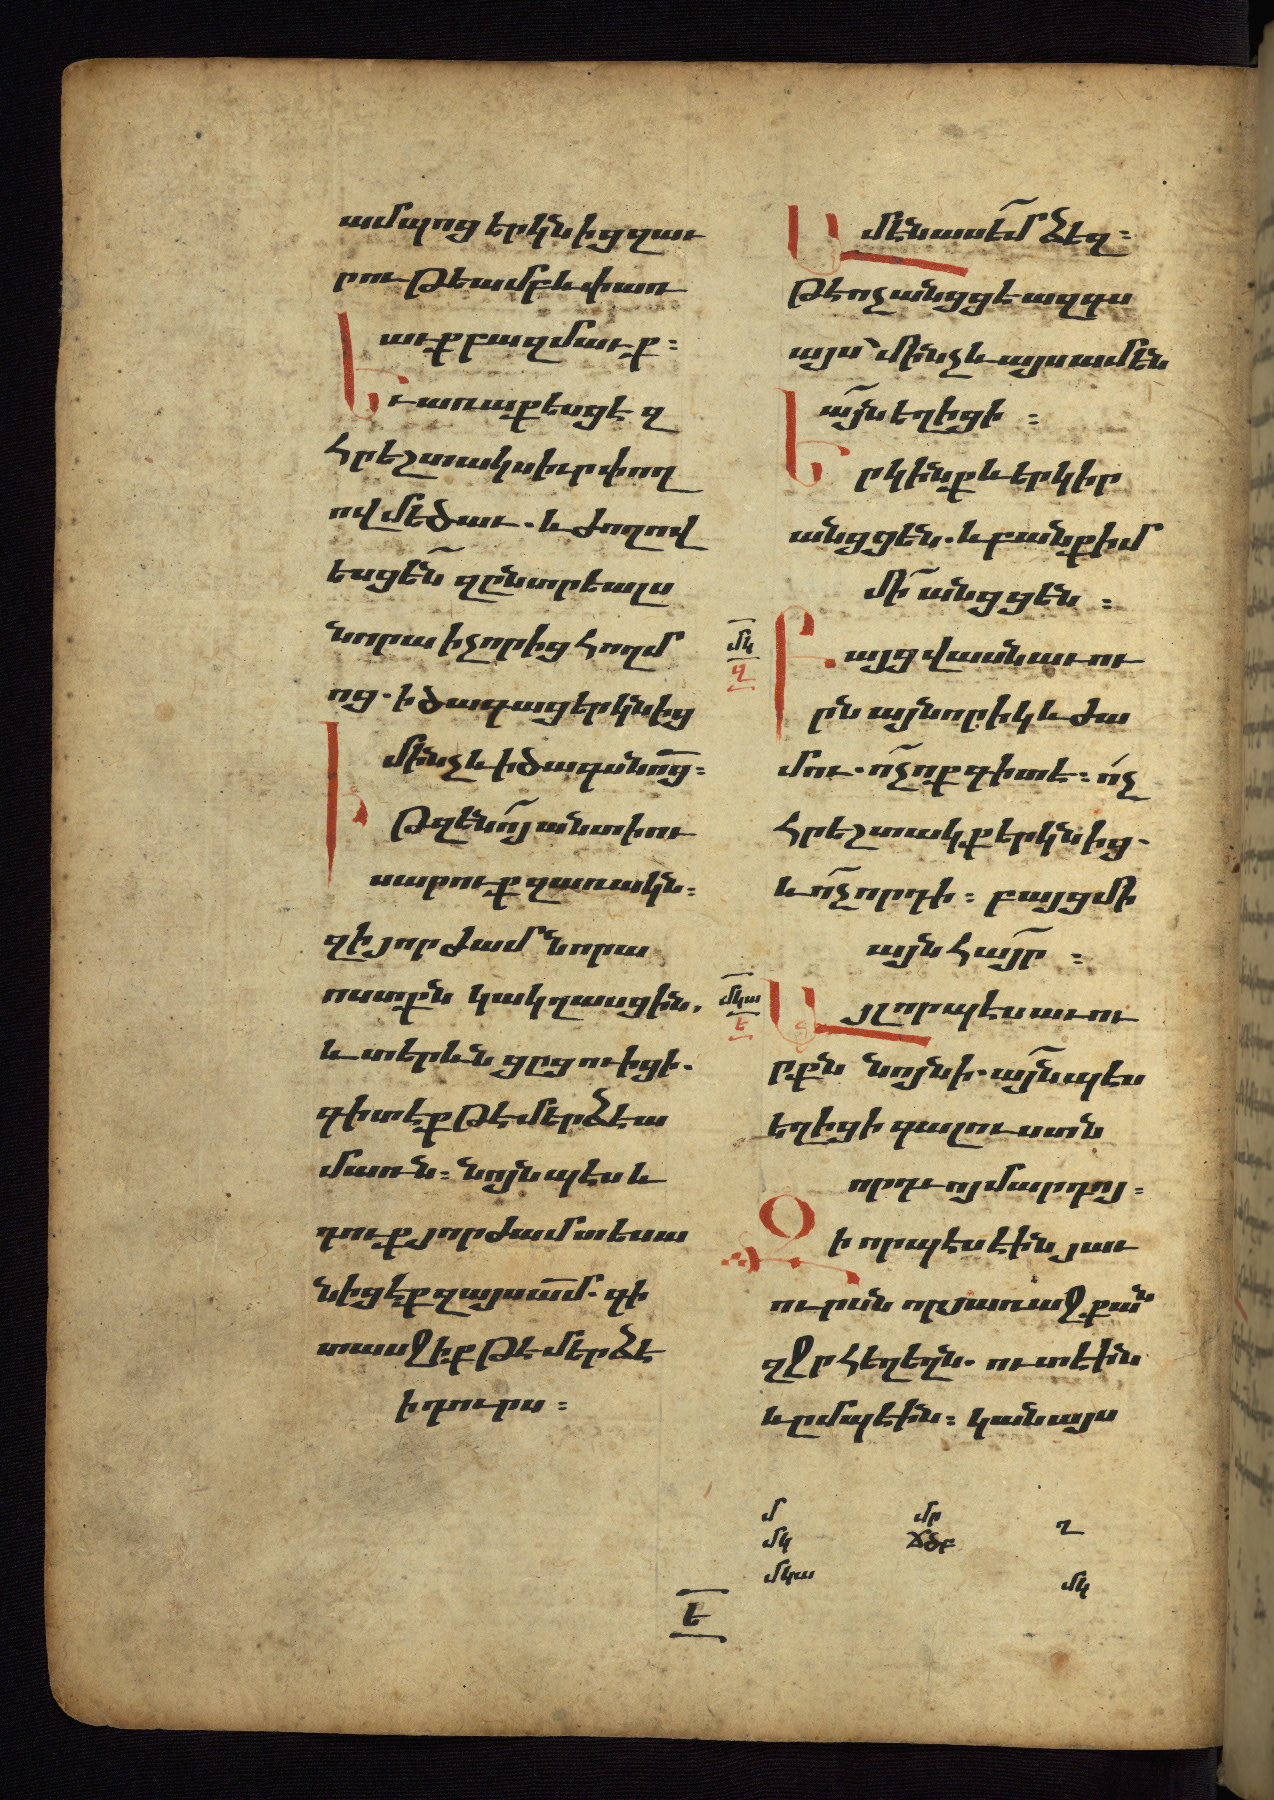 ամպոց երկնից զաւ
րութեամբ և փառ
աւք բազմաւք ։
Եւ առաքեսցէ զ
հրեշտակս իւր փող
ով մեծաւ . և ժողով
եսցեն զընտրեալս
նորա ի չորից հողմ
ոց . ի ծագաց երկնից
մինչև ի ծագս նոց ։
Ի թզենոյ անտի ու
սարուք զառակն ։
զի յորժամ նորա
ոստքն կակղասցին ,
և տերևն ցըցուիցի .
գիտէք թէ մերձ է ա
մառն ։ նոյնպէս և
դուք յորժամ տեսա
նիցէք զայս ամ . գի
տասջիք թէ մերձ է
ի դուրս ։
Ամէն ասեմ ձեզ ։
թէ ոչ անցցէ ազգս
այս՝ մինչև այս ամէն
այն եղիցի ։
Երկինք և երկիր
անցցեն . և բանք իմ
մի անցցեն ։
մկ
զ
Բայց վասն աւու
րն այնորիկ և ժա
մու . ոչ ոք գիտէ ։ ոչ
հրեշտակք երկնից .
և ոչ որդի ։ բայց մի
այն հայր ։
մկա
ե
Այլ որպէս աւու
րքն նոյնի . այնպէս
եղիցի գալուստն
որդւոյ մարդոյ ։
Զի որպէս էին յաւ
ուրսն որ յառաջ քան
զջրհեղեղն . ուտէին
և ըմպէին ։ կանայս
մ մր ղ
մկ ճծբ
մկա մկ
Ե